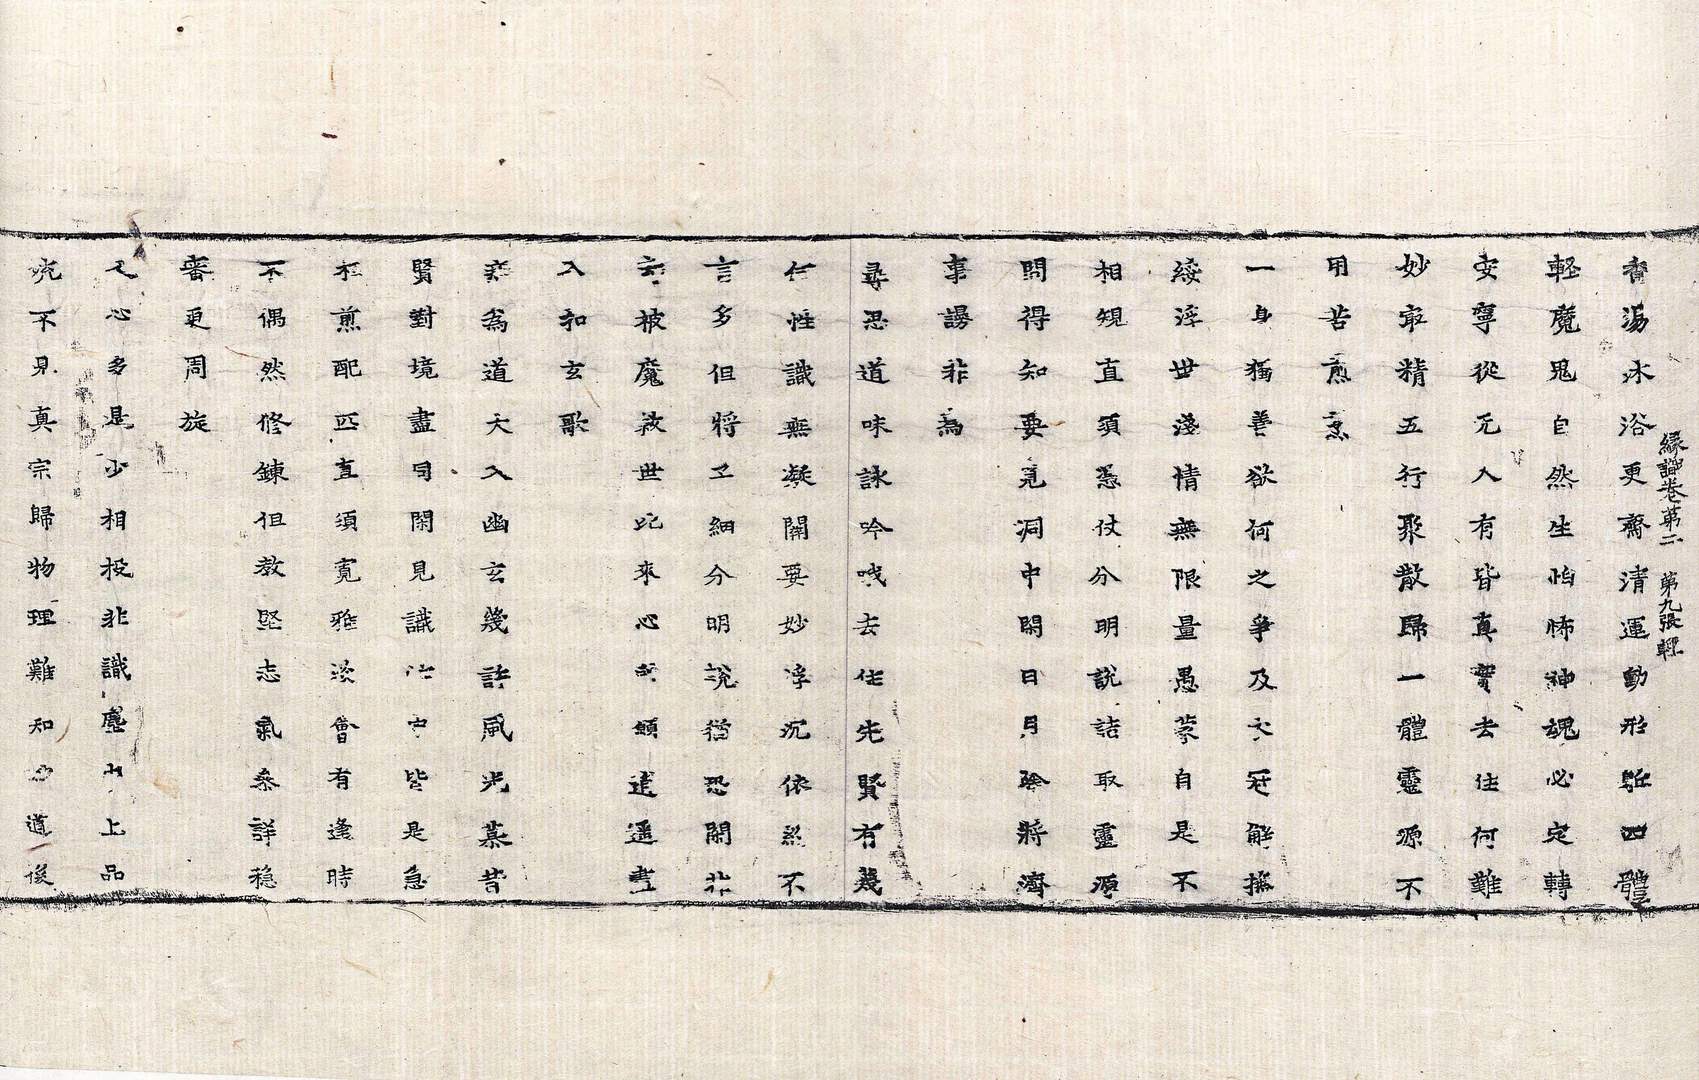 緣識卷第二 第九張 輕
香湯沐浴更齋清運動形軀四體
輕魔鬼自然生怕怖神魂必定轉
安寧從元入有皆真實去住何難
妙㝡精五行聚散歸一體靈源不
用苦煎烹
一身獨善欲何之爭及天冠解撫
綏浮世淺情無限量愚蒙自是不
相規直須憑仗分明說詰取靈源
問得知要覓洞中閑日月陰將濟
事謗非為
尋思道味詠吟哦去住先賢有幾
性識無凝開要妙浮沉依然不
言多但將工細分明說猶恐開非
玄被魔救世比來心願逍遥盡
入和玄歌
為道大入幽玄幾許風光慕昔
賢對境盡同閑見識中皆是急
煎配匹直須寬雅淡會有逢時
不偶然修鍊但教堅志氣叅詳穩
審更周旋
心多是少相投非識塵上品
見不見真宗歸物理難知道後